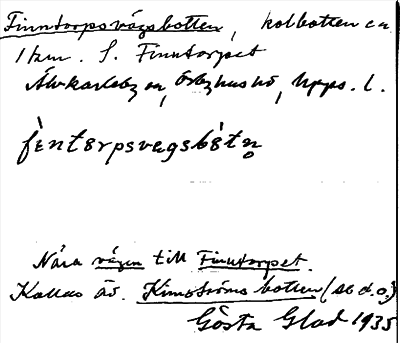 Finntorpsvägsbotten, kolbotten ca
1 km. S. Finntorpet
Älvkarleby sn, Örbyhus hd, Upps. l.
fèntorpsvegsbótn̥
Nära vägen till Finntorpet.
Kallas äv. Kimströms botten (se d.o.)
Gösta Glad 1935